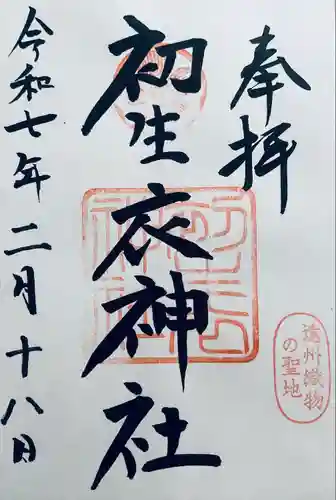 奉拝
初生衣神社
令和七年二月十八日
遠州織物
の聖地